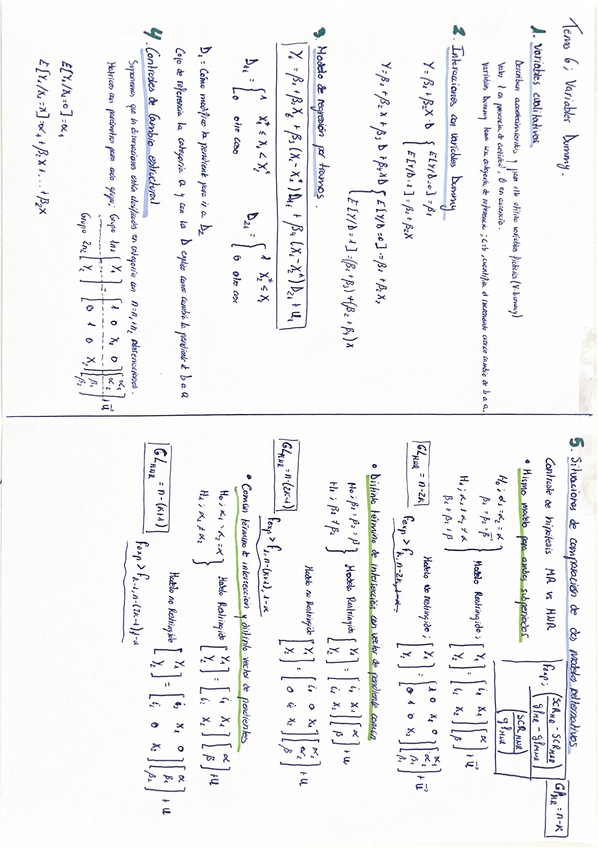 Tema 6: Variables Dummy.
1. Variables cualitativas
Describen acontecimientos y para ello utilizo variables ficticias (V. Dummy)
Valor 1 en presencia de cualidad, 0 en ausencia.
Variables Dummy tienen una categoría de referencia; cuantifica el incremento cuando cambio de b a a.
2. Interacciones con variables Dummy
Y = β1 + β2X·D { E[Y/D=0] = β1
E[Y/D=1] = β1 + β2X
Y = β1 + β2X + β3D + β4XD { E[Y/D=0] = β1 + β2X,
E[Y/D=1] = (β1 + β3) + (β2 + β4)X
3. Modelo de regresión por tramos.
Yi = β1 + β2Xi + β3(Xi - X1*)D1i + β4(Xi - X2*)D2i + ui
D1i = { 1 X1* ≤ Xi < X2*
0 otro caso
D2i = { 1 X2* ≤ Xi
0 otro caso
D1 = Cómo modifico la pendiente para ir a D2
Cojo de referencia la categoría a y con la D explico como cambia la pendiente de b a a
4. Contrastes de Cambio estructural
Suponemos que las observaciones están clasificadas en categorías con n = n1 + n2 observaciones.
Matrices con parámetros para cada grupo:
Grupo 1 n1 [Y1] [1 0 X1 0] [α1
Grupo 2 n2 [Y2] [0 1 0 X2] α2
β1
β2] + u
E[Y1/X1=0] = α1
E[Y1/X1=X] = α1 + β1X + ... + β2X
5. Situaciones de comparación de dos modelos alternativos.
Contraste de hipótesis MR vs MNR
Fexp: (SCR MR - SCR MNR / gl MR - gl MNR) / (SCR MNR / gl MNR)
Gl MR = n-k
• Mismo modelo para ambos subperiodos
H0: α1 = α2 = α
β1 = β2 = β
Modelo Restringido: [Y1 Y2] = [i1 X1 i2 X2] [α β] + u
H1: α1 ≠ α2 ≠ α
β1 ≠ β2 ≠ β
Modelo no restringido: [Y1 Y2] = [1 0 X1 0 0 1 0 X2] [α1 α2 β1 β2] + u
GL MNR = n-2k
Fexp > Fk, n-2k, 1-α
• Distinto término de intersección con vector de pendiente común
H0: β1 = β2 = β
H1: β1 ≠ β2
Modelo Restringido [Y1 Y2] = [i1 X1 i2 X2] [α β] + u
Modelo no Restringido [Y1 Y2] = [i1 0 X1 0 i2 X2] [α1 α2 β] + u
GL MNR = n-(k+1)
Fexp > F1, n-(k+1), 1-α
• Común término de intersección y distinto vector de pendientes
H0: α1 = α2 = α
H1: α1 ≠ α2
Modelo Restringido [Y1 Y2] = [i1 X1 i2 X2] [α β] + u
Modelo no Restringido [Y1 Y2] = [i1 X1 0 i2 0 X2] [α β1 β2] + u
Fexp > Fk-1, n-(2k-1), 1-α